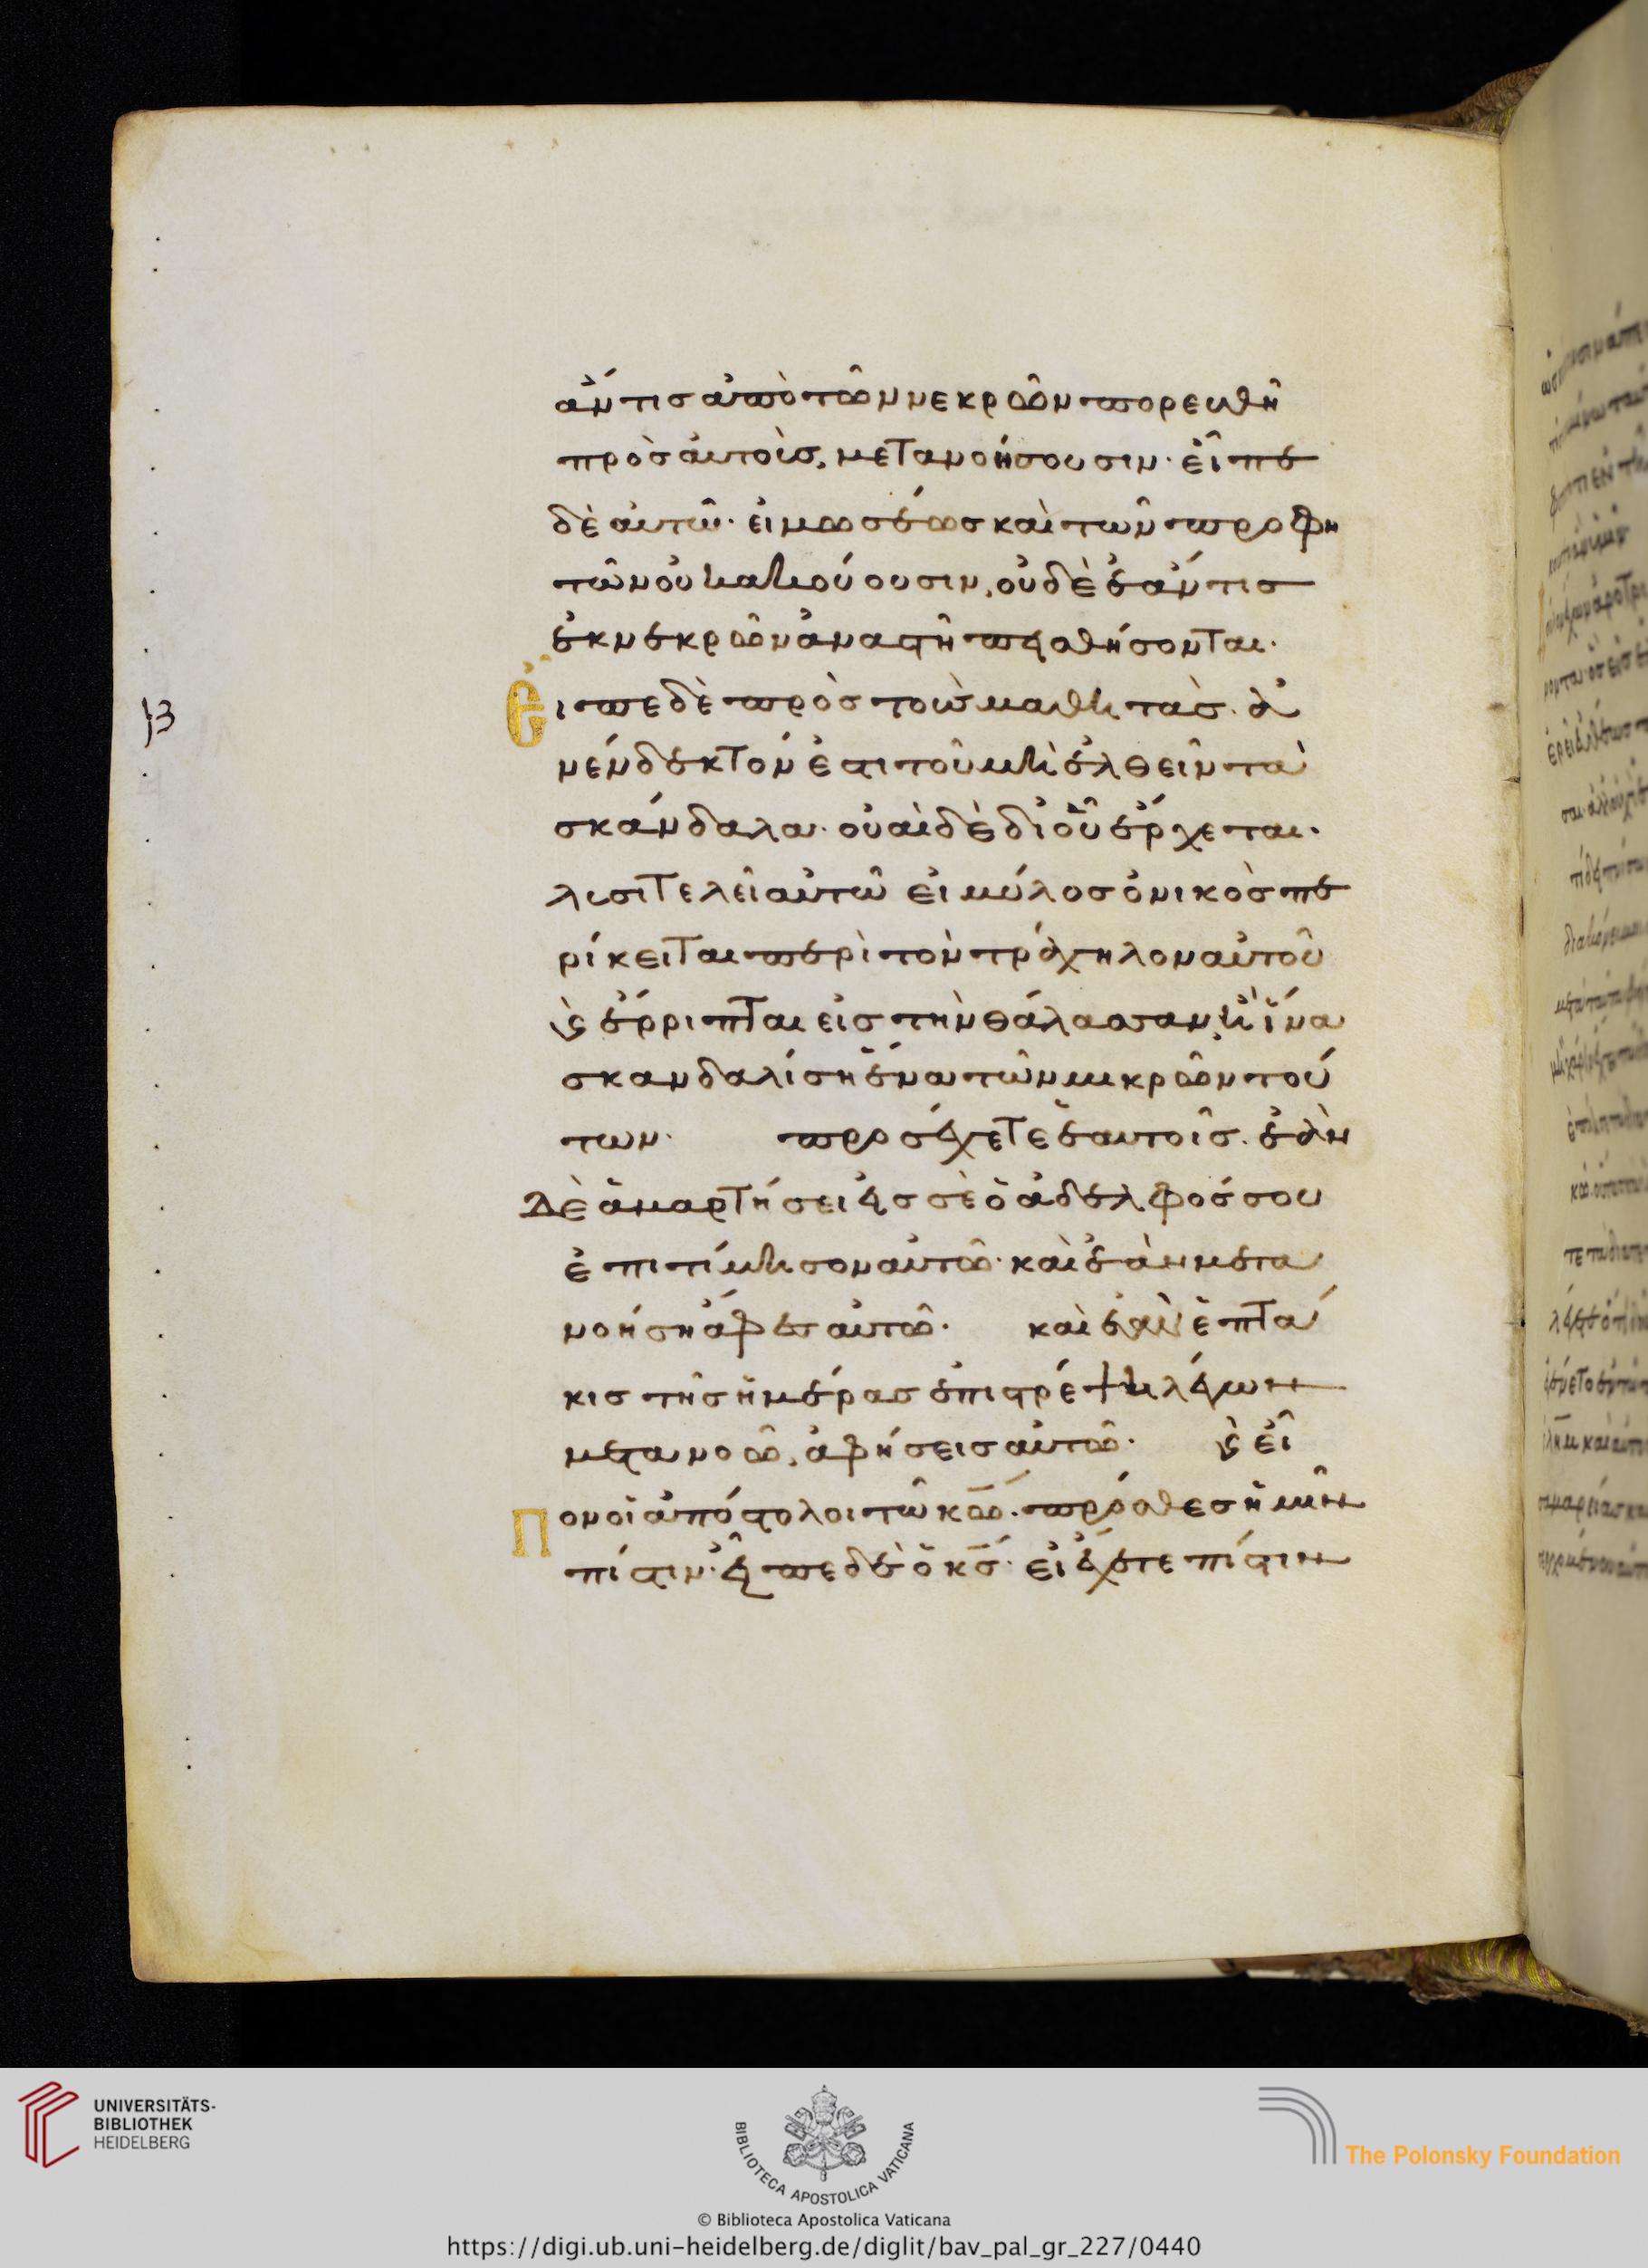 ἄν τις ἀπὸ τῶν νεκρῶν πορευθῆ
πρὸς αὐτοὺς, μετανοήσουσιν· εἶπε
δὲ αὐτῶ· εἰ μωσέως καὶ τῶν προφη
τῶν οὐκ ακούουσιν, οὐδὲ ἐάν τις
ἐκ νεκρῶν ἀναστῆ πεισθήσονται·
Εἶπε δὲ πρὸς τοὺς μαθητὰς· ἀ
νένδεκτόν ἐστι τοῦ μὴ ἐλθεῖν τὰ
σκάνδαλα· οὐαὶ δὲ δι οὗ ἔρχεται·
λυσιτελεῖ αὐτῶ εἰ μύλος ὀνικὸς πε
ρίκειται περὶ τὸν τράχηλον αὐτοῦ
ϗ ἔρριπται εἰς τὴν θάλασσαν, ἢ ἵνα
σκανδαλίση ἕνα τῶν μικρῶν τού
των· προσέχετε ἑαυτοῖς· ἐὰν
Δὲ ἁμαρτήσει εἰς σὲ ὁ ἀδελφός σου
ἐπιτίμησον αὐτῶ· καὶ ἐὰν μετα
νοήση ἄφες αὐτῶ· καὶ ἐὰν ἑπτά
κις τῆς ἡμέρας ἐπιστρέψη λέγων
μετανοῶ, ἀφήσεις αὐτῶ· ϗ εἶ
Πον οἱ ἀπόστολοι τῶ κω· πρόσθες ἡμῖν
πίστιν· εἶπε δὲ ὁ κς· εἰ ἔχετε πίστιν
UNIVERSITÄTS-
BIBLIOTHEK
HEIDELBERG
BIBLIOTECA APOSTOLICA VATICANA
The Polonsky Foundation
© Biblioteca Apostolica Vaticana
https://digi.ub.uni-heidelberg.de/diglit/bav_pal_gr_227/0440